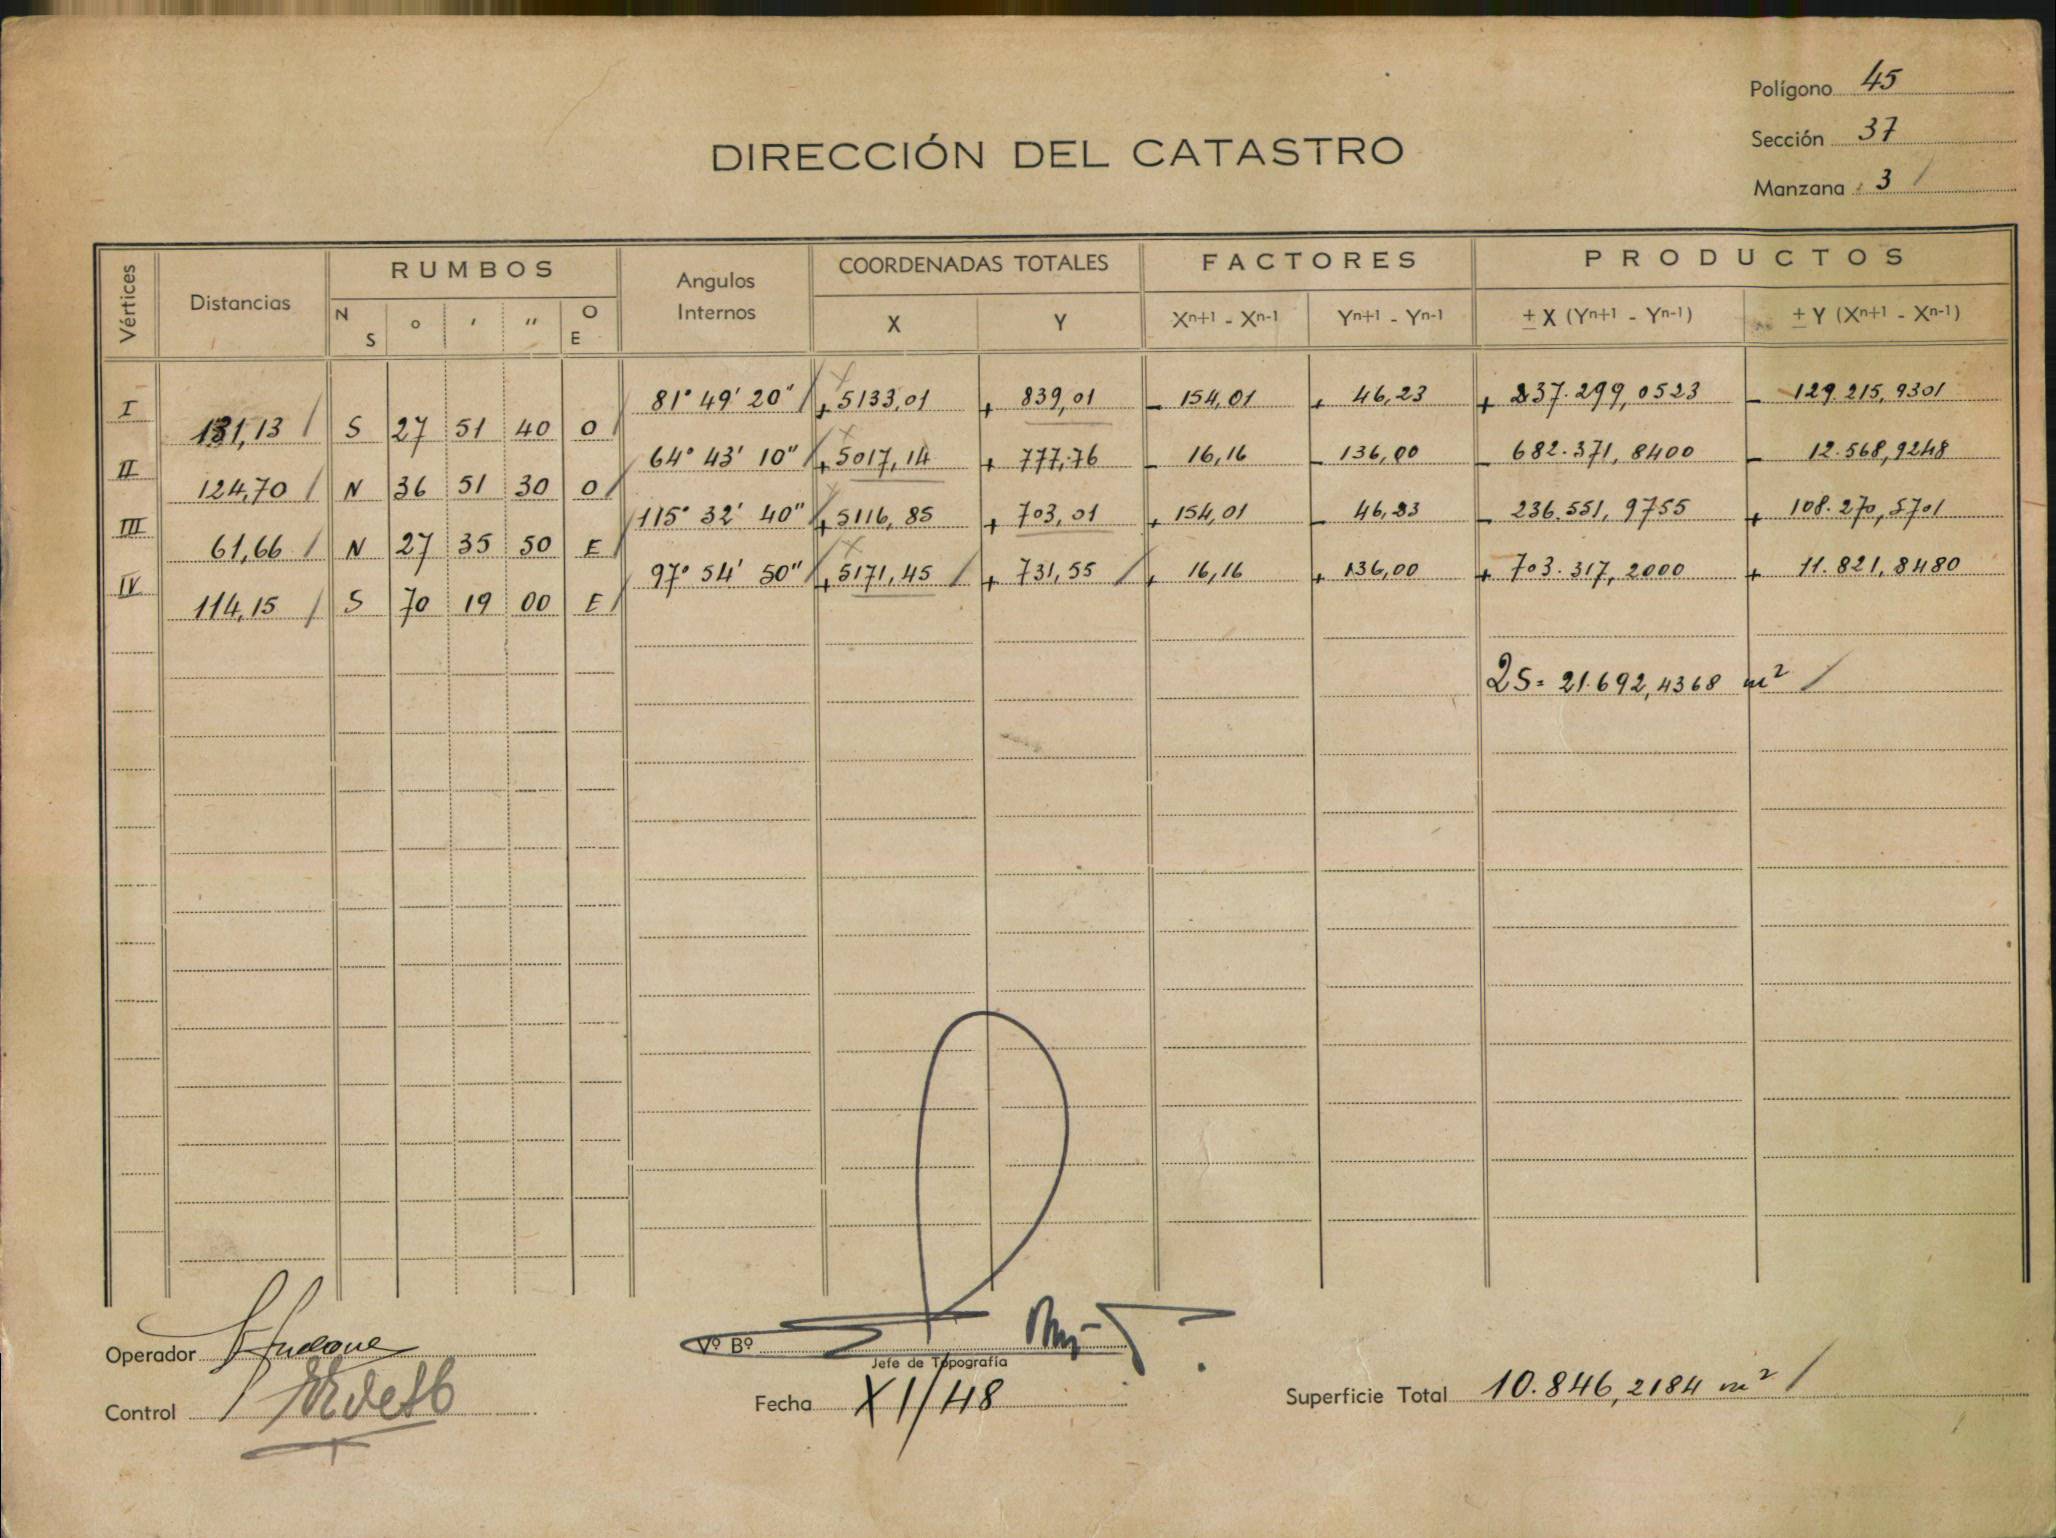 Polígono 45
Sección 37
Manzana 3
DIRECCIÓN DEL CATASTRO
Vértices Distancias RUMBOS Angulos Internos COORDENADAS TOTALES FACTORES PRODUCTOS
N S ° ' " O E X Y Xn+1 - Xn-1 Yn+1 - Yn-1 ± X (Yn+1 - Yn-1) ± Y (Xn+1 - Xn-1)
I 81° 49' 20" + 5133,01 + 839,01 - 154,01 + 46,23 + 237.299,0523 - 129.215,9301
131,13 S 27 51 40 O
II 64° 43' 10" + 5017,14 + 777,76 - 16,16 - 136,00 - 682.371,8400 - 12.568,9248
124,70 N 36 51 30 O
III 115° 32' 40" + 5116,85 + 703,01 + 154,01 - 46,23 - 236.551,9755 + 108.270,5701
61,66 N 27 35 50 E
IV 97° 54' 50" + 5171,45 + 731,55 + 16,16 + 136,00 + 703.317,2000 + 11.821,8480
114,15 S 70 19 00 E
2S = 21.692,4368 m²
Operador
Vº Bº
Jefe de Topografía
Control
Fecha XI/48
Superficie Total 10.846,2184 m²